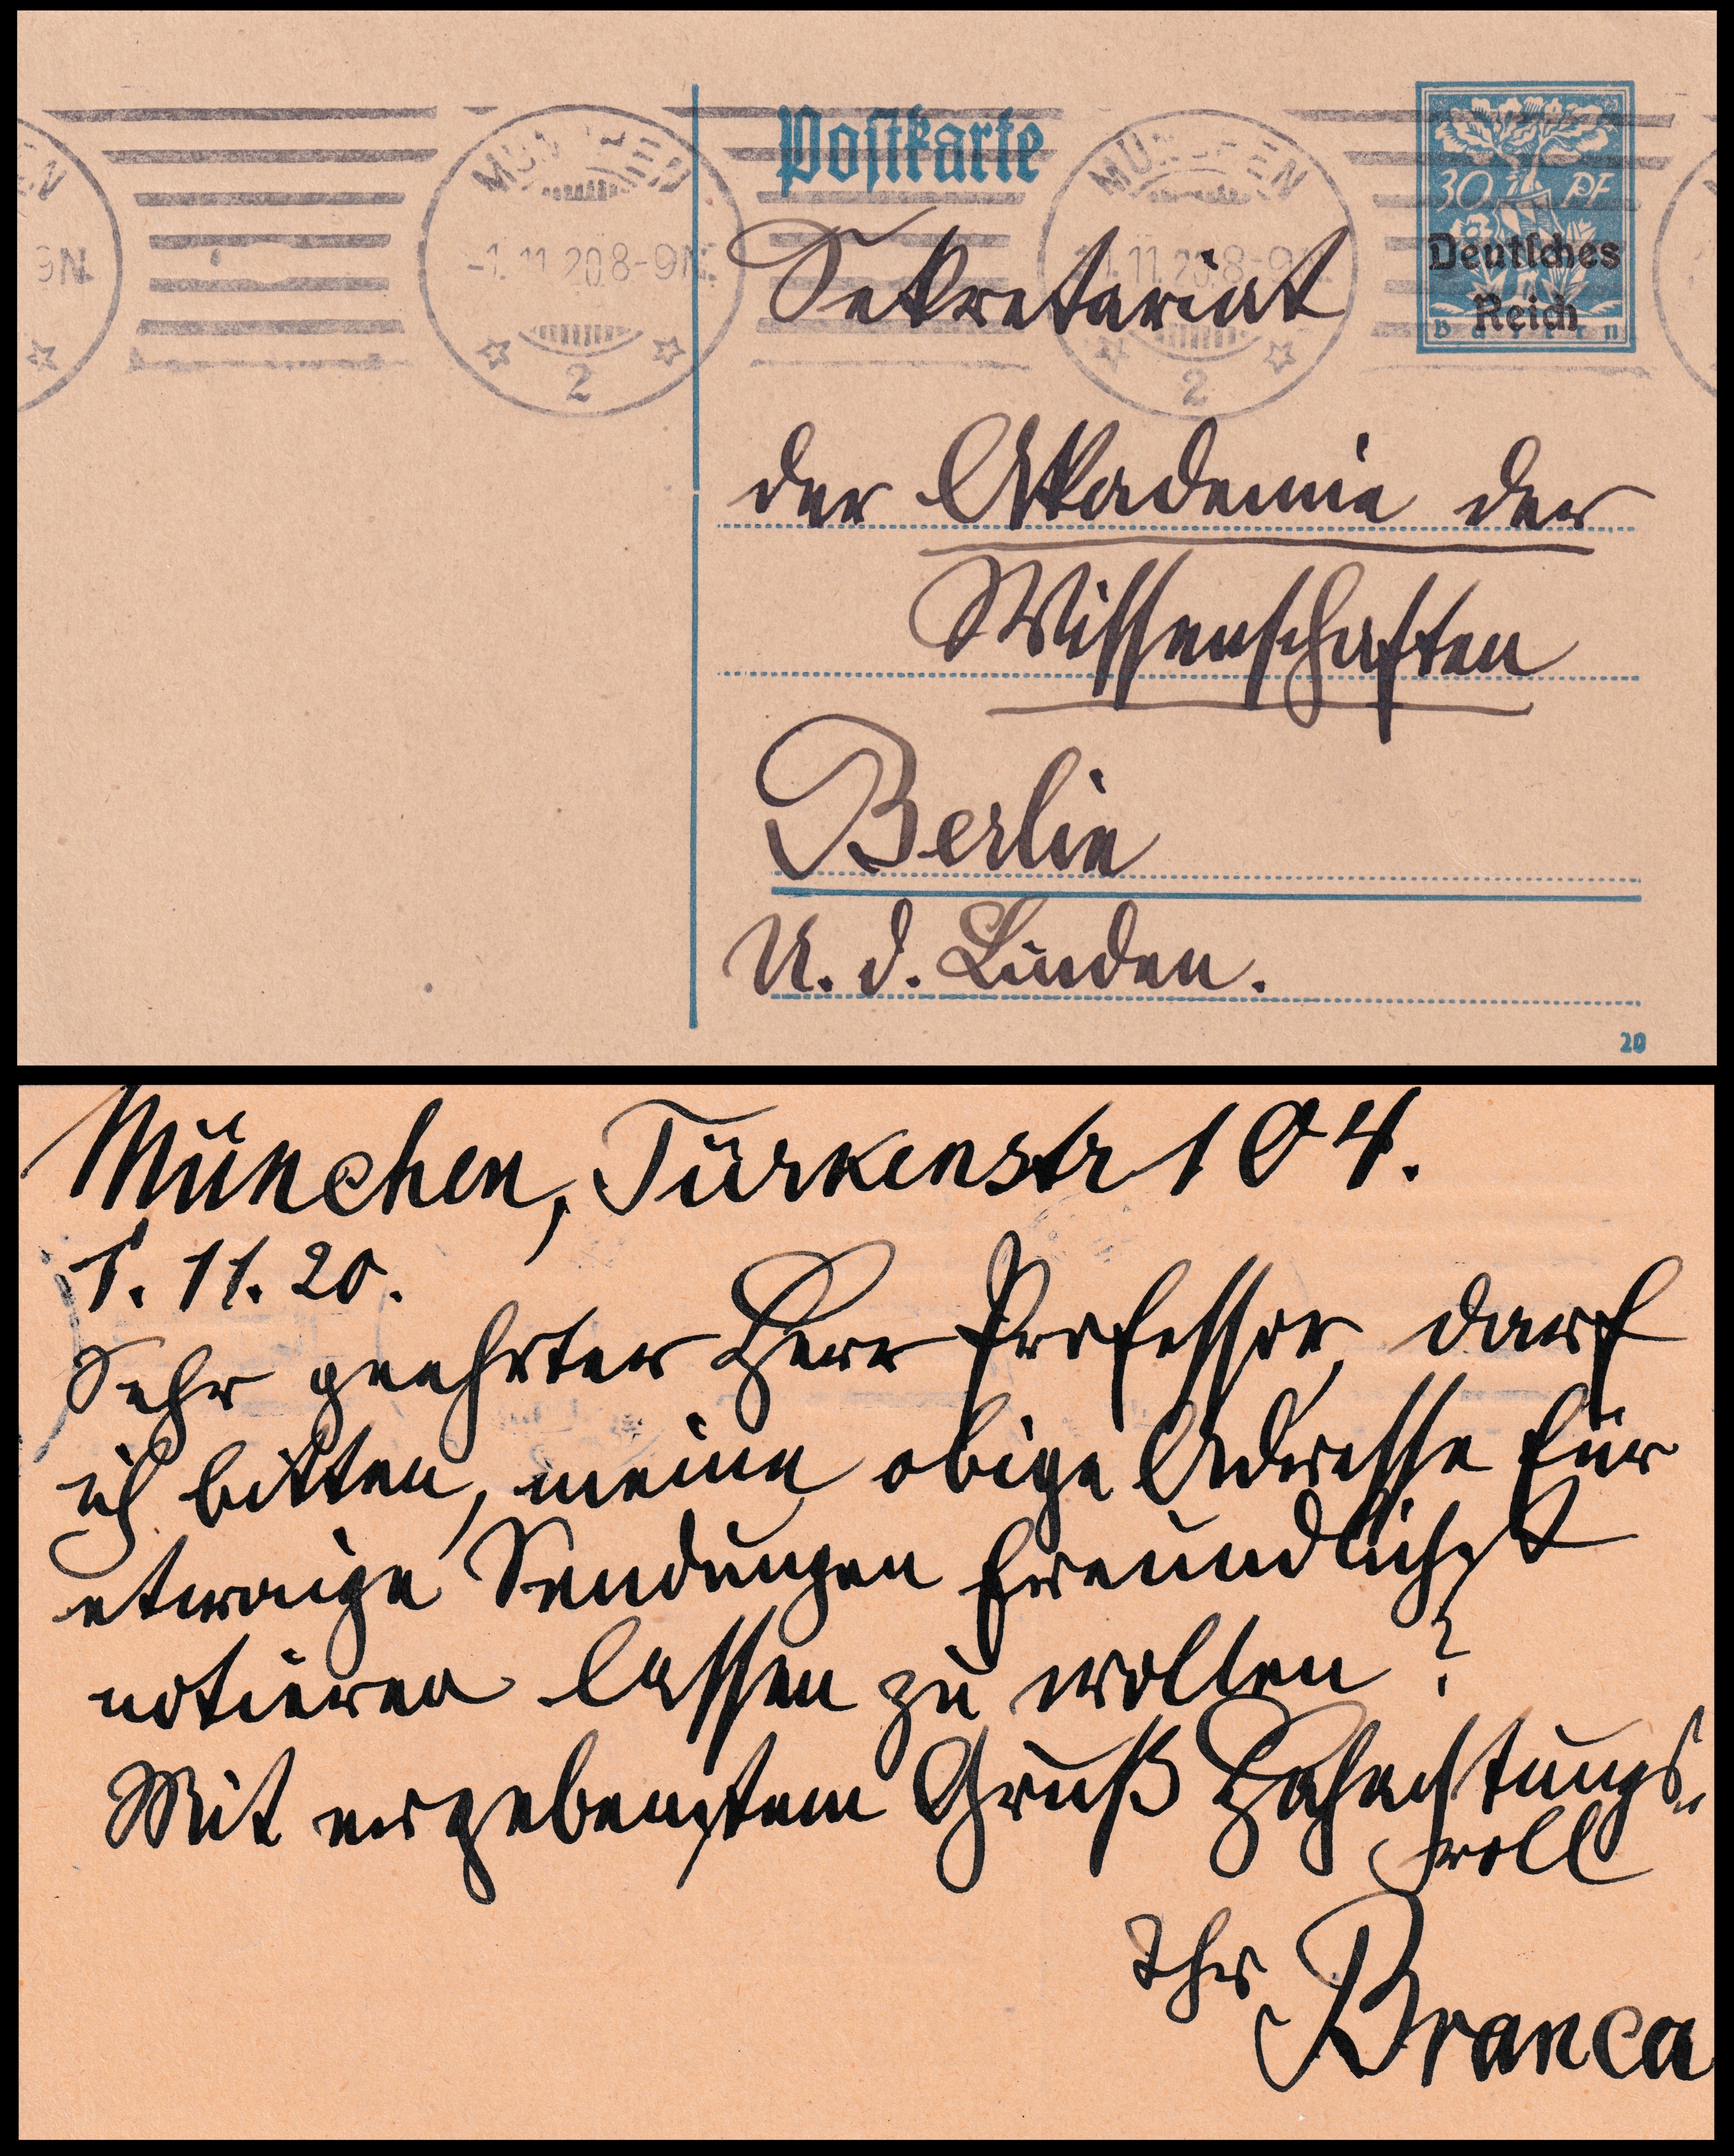 Postkarte
MÜNCHEN
-1.11.20 8-9N.
2
MÜNCHEN
1.11.20 8-9N
2
EN
9N.
30 PF
Deutsches
Reich
Bayern
Sekretariat
der Akademie der
Wissenschaften
Berlin
U. d. Linden.
20
München, Türkenstr 104.
1. 11. 20.
Sehr geehrter Herr Professor, darf
ich bitten, meine obige Adresse für
etwaige Sendungen freundlichst
notieren lassen zu wollen?
Mit ergebenstem Gruß Hochachtungs-
voll
Ihr Branca